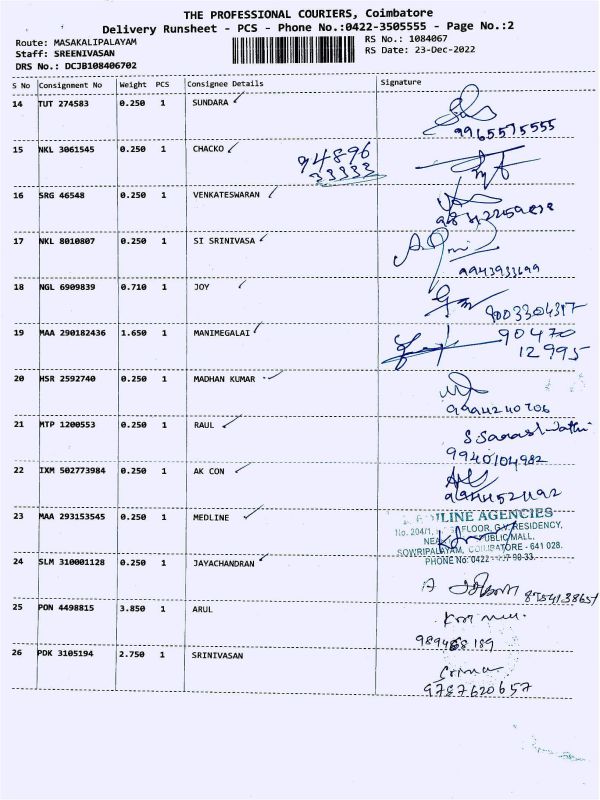 THE PROFESSIONAL COURIERS, Coimbatore
Delivery Runsheet - PCS - Phone No.:0422-3505555 - Page No.:2
Route: MASAKALIPALAYAM
Staff: SREENIVASAN
DRS No.: DCJB108406702
RS No.: 1084067
RS Date: 23-Dec-2022
S No Consignment No Weight PCS Consignee Details Signature
14 TUT 274583 0.250 1 SUNDARA
9965575555
15 NKL 3061545 0.250 1 CHACKO 94896
33333
16 SRG 46548 0.250 1 VENKATESWARAN
17 NKL 8010807 0.250 1 SI SRINIVASA
9943933699
18 NGL 6909839 0.710 1 JOY
9003304317
19 MAA 290182436 1.650 1 MANIMEGALAI 90470
12995
20 HSR 2592740 0.250 1 MADHAN KUMAR
9994240706
21 MTP 1200553 0.250 1 RAUL
9940104982
22 IXM 502773984 0.250 1 AK CON
23 MAA 293153545 0.250 1 MEDLINE
LINE AGENCIES
No. 204/1, FLOOR, G.V. RESIDENCY,
PUBLIC MALL,
SOWRIPALAYAM, COIMBATORE - 641 028.
PHONE No: 0422
24 SLM 310001128 0.250 1 JAYACHANDRAN
8754138651
25 PON 4498815 3.850 1 ARUL
26 PDK 3105194 2.750 1 SRINIVASAN
9787620657